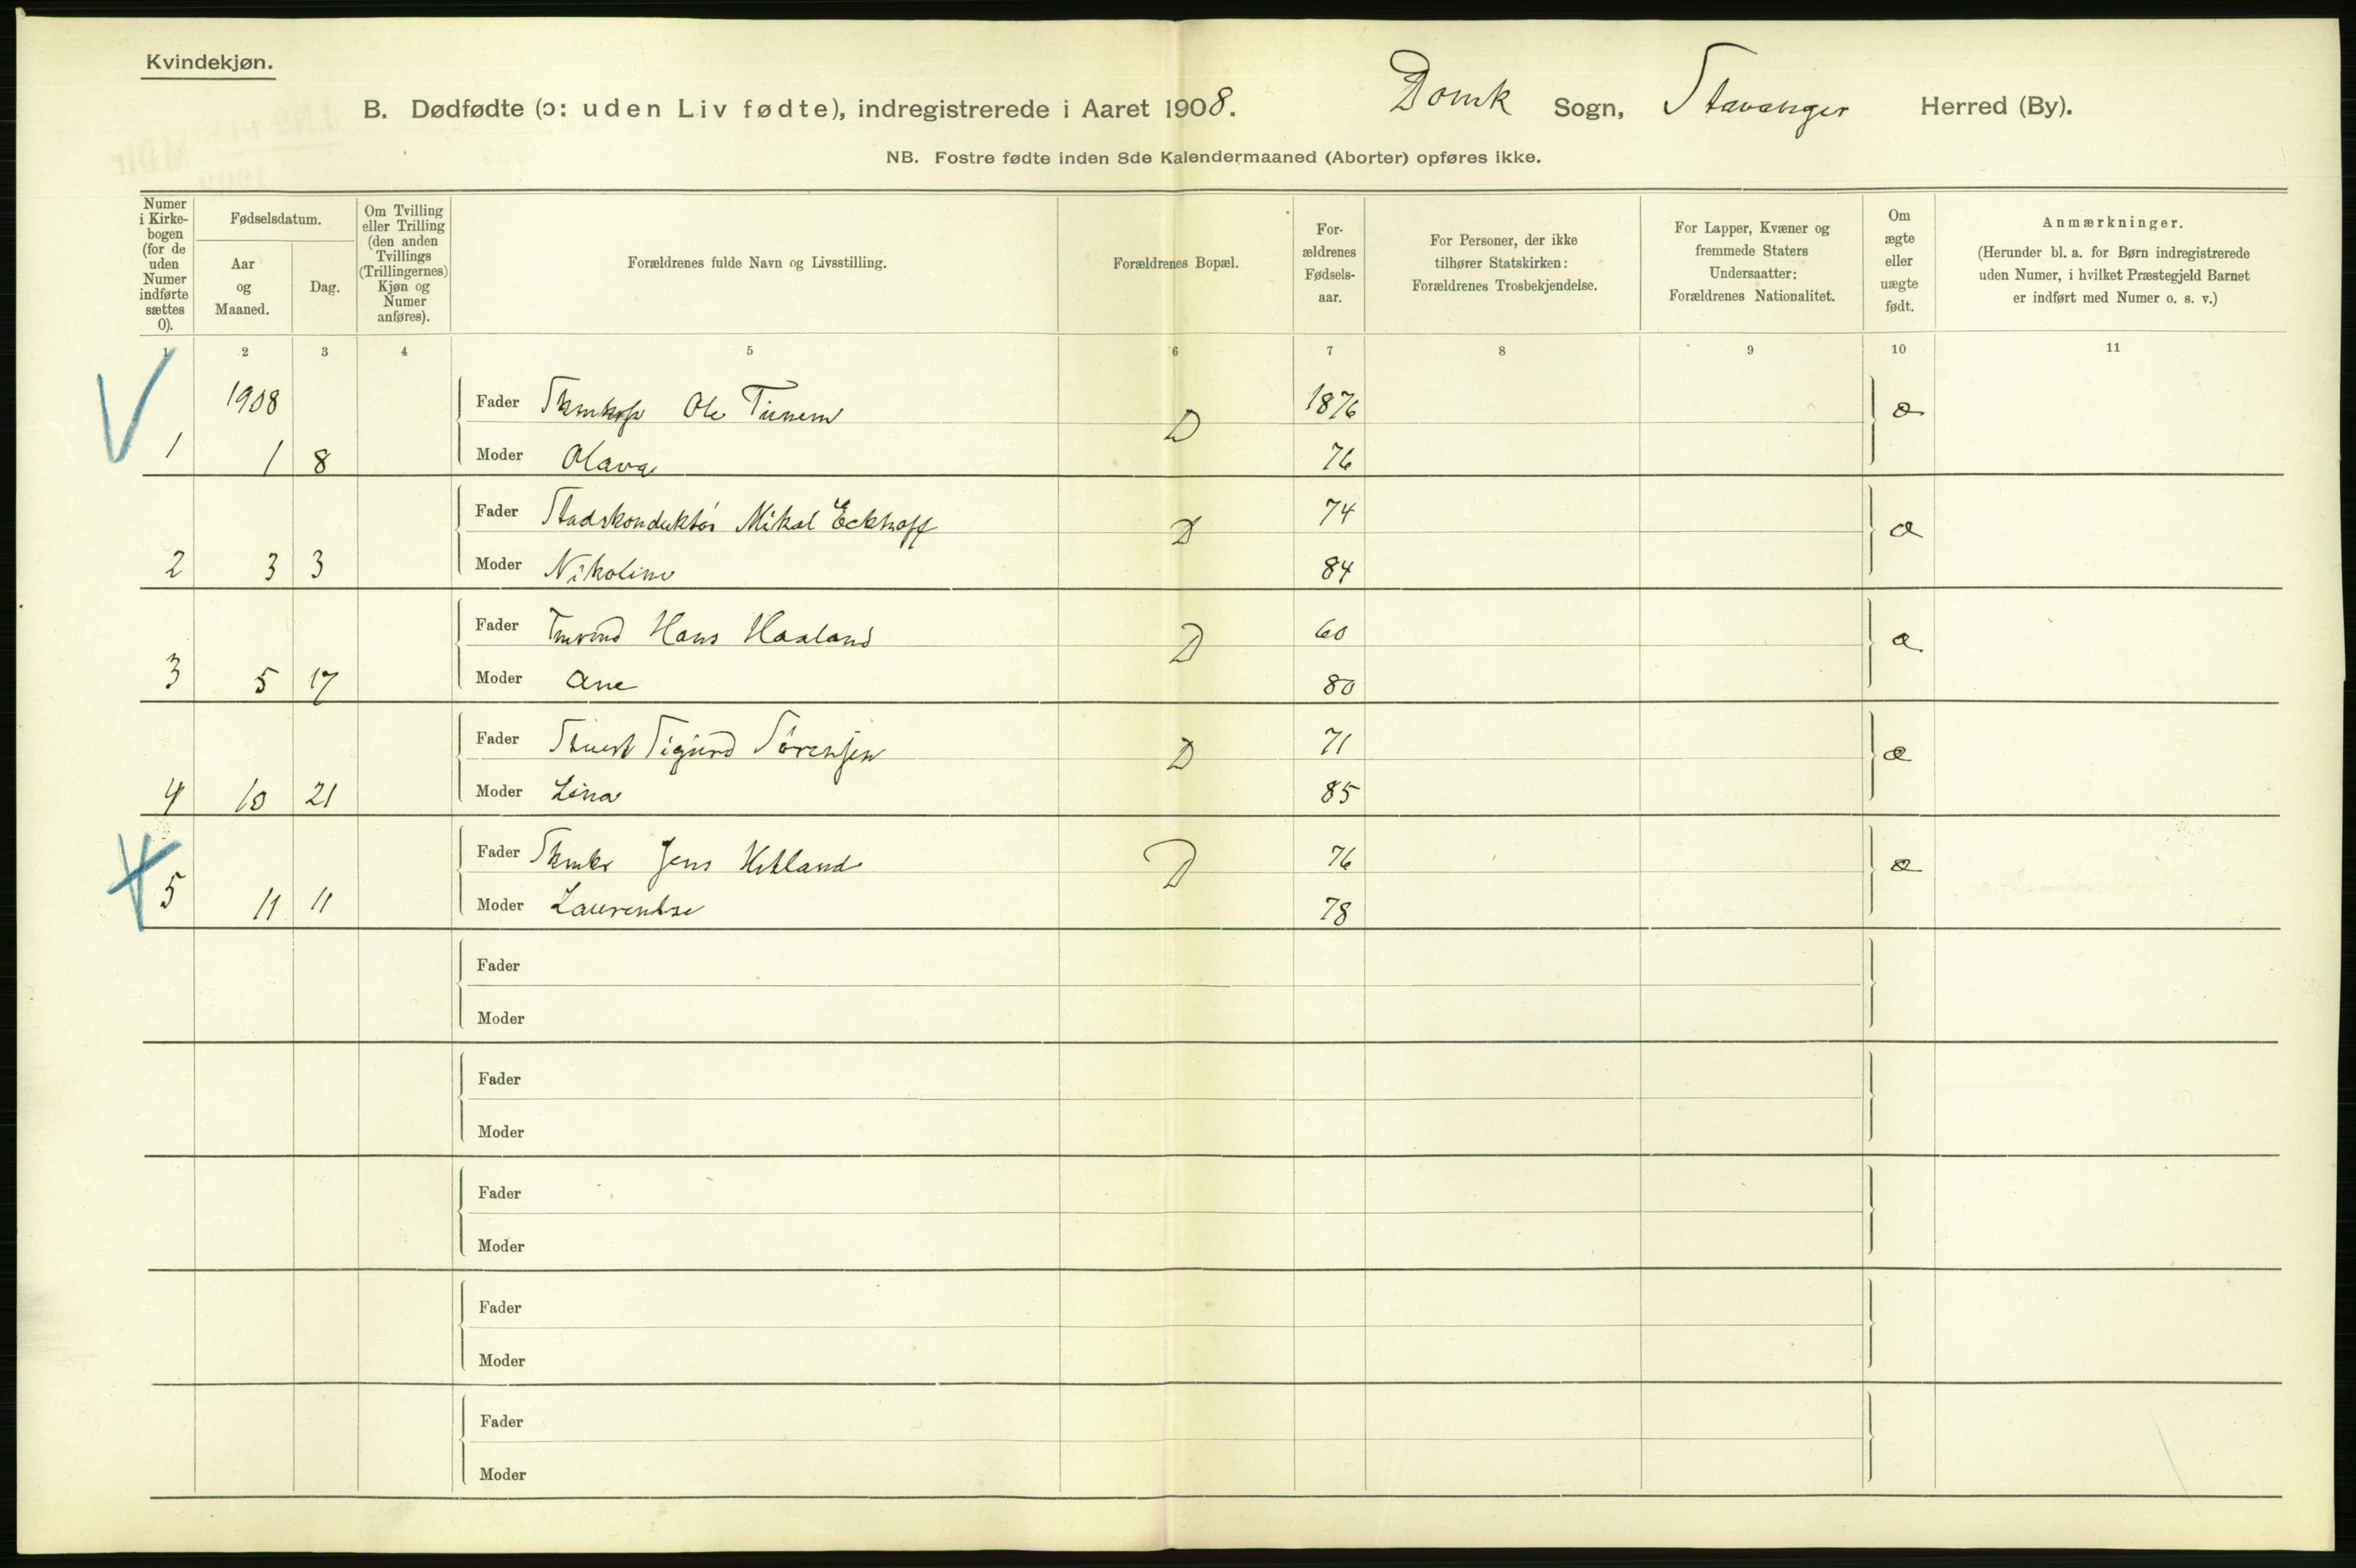 Kvindekjøn.
B. Dødfødte (ɔ: uden Liv fødte), indregistrerede i Aaret 1908. Domk Sogn, Stavanger Herred (By).
NB. Fostre fødte inden 8de Kalendermaaned (Aborter) opføres ikke.
Numer
i Kirke-
bogen
(for de
uden
Numer
indførte
sættes
0).
Fødselsdatum.
Aar
og
Maaned.
Dag.
Om Tvilling
eller Trilling
(den anden
Tvillings
(Trillingernes)
Kjøn og
Numer
anføres).
Forældrenes fulde Navn og Livsstilling.
Forældrenes Bopæl.
For-
ældrenes
Fødsels-
aar.
For Personer, der ikke
tilhører Statskirken:
Forældrenes Trosbekjendelse.
For Lapper, Kvæner og
fremmede Staters
Undersaatter:
Forældrenes Nationalitet.
Om
ægte
eller
uægte
født.
Anmærkninger.
(Herunder bl. a. for Børn indregistrerede
uden Numer, i hvilket Præstegjeld Barnet
er indført med Numer o. s. v.)
1 2 3 4 5 6 7 8 9 10 11
1908 Fader Ole D 1876 æ
1 1 8 Moder Olava 76
Fader Stadskonduktør Mikal Eckhoff D 74 æ
2 3 3 Moder Nikoline 84
Fader Hans Haaland D 60 æ
3 5 17 Moder Ane 80
Fader Sigurd Sørensen D 71 æ
4 10 21 Moder Lina 85
Fader Jens Hetland D 76 æ
5 11 11 Moder Laurentse 78
Fader
Moder
Fader
Moder
Fader
Moder
Fader
Moder
Fader
Moder